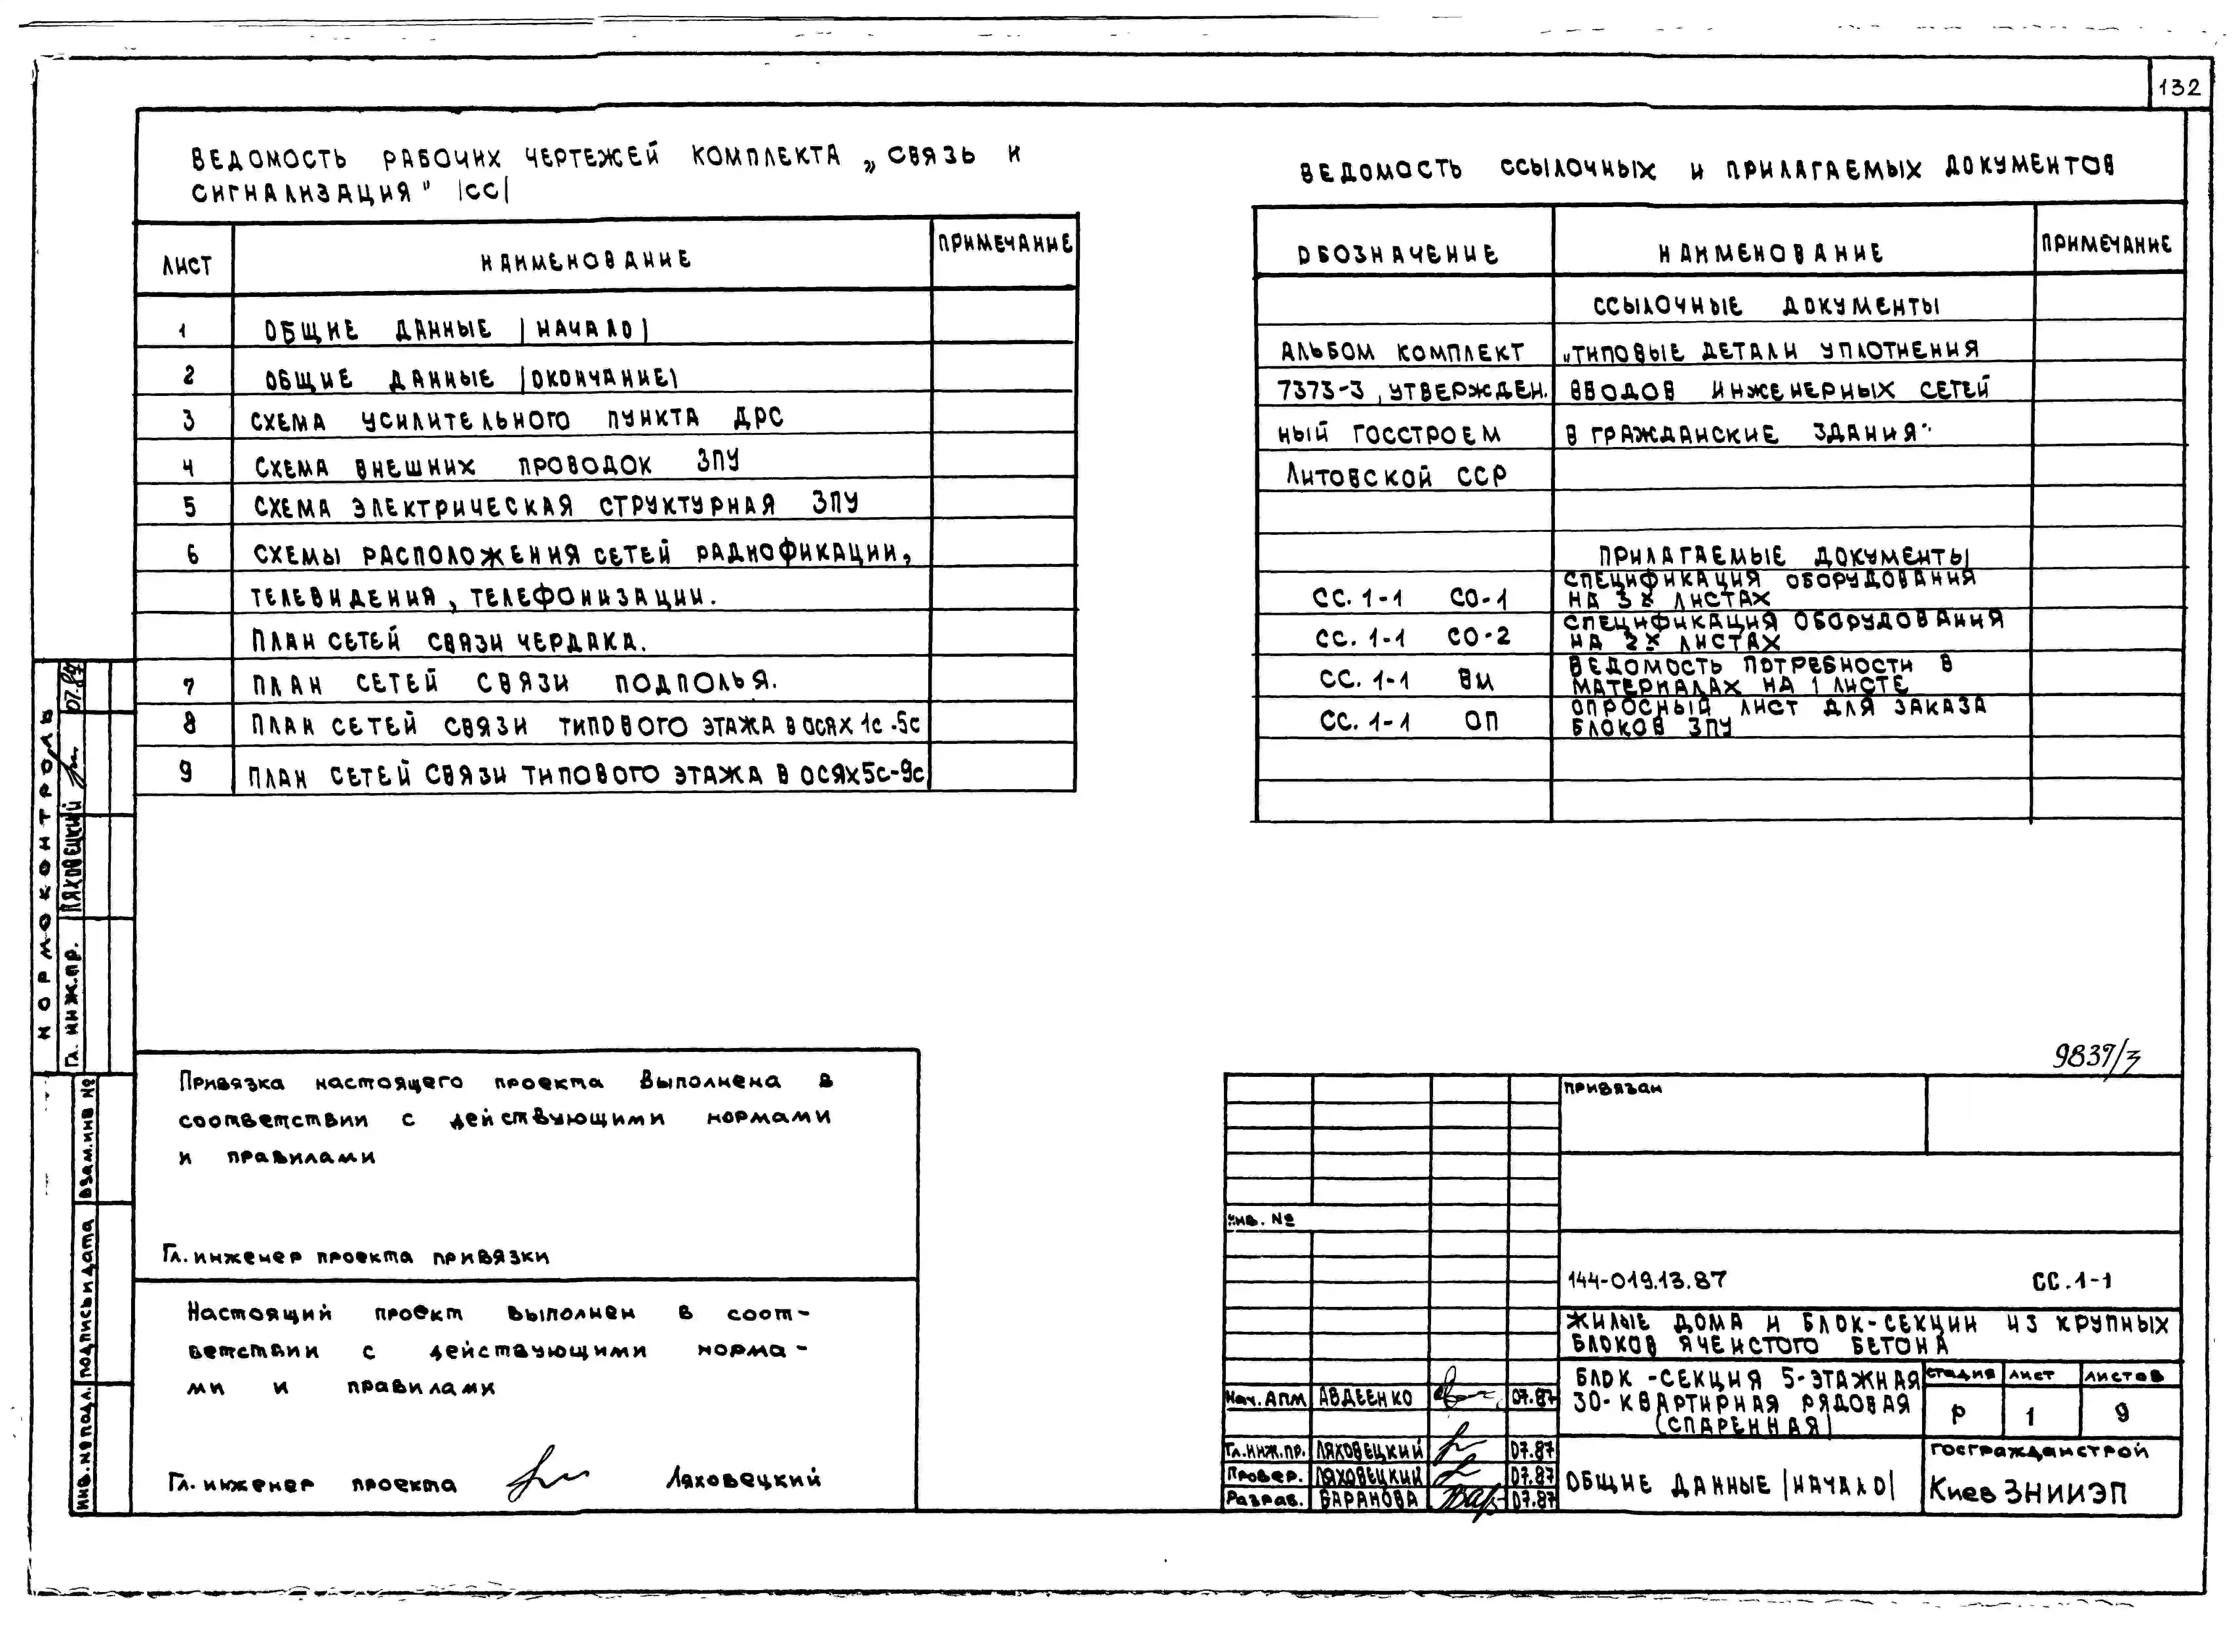 132
ВЕДОМОСТЬ РАБОЧИХ ЧЕРТЕЖЕЙ КОМПЛЕКТА „СВЯЗЬ И
СИГНАЛИЗАЦИЯ" |СС|
ЛИСТ НАИМЕНОВАНИЕ ПРИМЕЧАНИЕ
1 ОБЩИЕ ДАННЫЕ |НАЧАЛО|
2 ОБЩИЕ ДАННЫЕ |ОКОНЧАНИЕ|
3 СХЕМА УСИЛИТЕЛЬНОГО ПУНКТА ДРС
4 СХЕМА ВНЕШНИХ ПРОВОДОК ЗПУ
5 СХЕМА ЭЛЕКТРИЧЕСКАЯ СТРУКТУРНАЯ ЗПУ
6 СХЕМЫ РАСПОЛОЖЕНИЯ СЕТЕЙ РАДИОФИКАЦИИ,
ТЕЛЕВИДЕНИЯ, ТЕЛЕФОНИЗАЦИИ.
ПЛАН СЕТЕЙ СВЯЗИ ЧЕРДАКА.
7 ПЛАН СЕТЕЙ СВЯЗИ ПОДПОЛЬЯ.
8 ПЛАН СЕТЕЙ СВЯЗИ ТИПОВОГО ЭТАЖА В ОСЯХ 1с-5с
9 ПЛАН СЕТЕЙ СВЯЗИ ТИПОВОГО ЭТАЖА В ОСЯХ 5с-9с
ВЕДОМОСТЬ ССЫЛОЧНЫХ И ПРИЛАГАЕМЫХ ДОКУМЕНТОВ
ОБОЗНАЧЕНИЕ НАИМЕНОВАНИЕ ПРИМЕЧАНИЕ
ССЫЛОЧНЫЕ ДОКУМЕНТЫ
АЛЬБОМ КОМПЛЕКТ „ТИПОВЫЕ ДЕТАЛИ УПЛОТНЕНИЯ
7373-3, УТВЕРЖДЕН. ВВОДОВ ИНЖЕНЕРНЫХ СЕТЕЙ
НЫЙ ГОССТРОЕМ В ГРАЖДАНСКИЕ ЗДАНИЯ"
ЛИТОВСКОЙ ССР
ПРИЛАГАЕМЫЕ ДОКУМЕНТЫ
СС. 1-1 СО-1 СПЕЦИФИКАЦИЯ ОБОРУДОВАНИЯ
НА 3х ЛИСТАХ
СС. 1-1 СО-2 СПЕЦИФИКАЦИЯ ОБОРУДОВАНИЯ
НА 2х ЛИСТАХ
СС. 1-1 ВМ ВЕДОМОСТЬ ПОТРЕБНОСТИ В
МАТЕРИАЛАХ НА 1 ЛИСТЕ
СС. 1-1 ОП ОПРОСНЫЙ ЛИСТ ДЛЯ ЗАКАЗА
БЛОКОВ ЗПУ
НОРМОКОНТРОЛЬ
Гл. инж.пр. ЛЯХОВЕЦКИЙ 07.87
ИНВ.№ ПОДЛ. ПОДПИСЬ И ДАТА ВЗАМ.ИНВ №
Привязка настоящего проекта выполнена в
соответствии с действующими нормами
и правилами
Гл. инженер проекта привязки
Настоящий проект выполнен в соот-
ветствии с действующими норма-
ми и правилами
Гл. инженер проекта Ляховецкий
9839/3
ПРИВЯЗАН
Инв. №
144-019.13.87 СС.1-1
ЖИЛЫЕ ДОМА И БЛОК-СЕКЦИИ ИЗ КРУПНЫХ
БЛОКОВ ЯЧЕИСТОГО БЕТОНА
БЛОК-СЕКЦИЯ 5-ЭТАЖНАЯ
30-КВАРТИРНАЯ РЯДОВАЯ
(СПАРЕННАЯ)
СТАДИЯ ЛИСТ ЛИСТОВ
Р 1 9
Нач. АПМ АВДЕЕНКО 07.87
Гл.инж.пр. ЛЯХОВЕЦКИЙ 07.87
Провер. ЛЯХОВЕЦКИЙ 07.87
Разраб. БАРАНОВА 07.87
ОБЩИЕ ДАННЫЕ |НАЧАЛО|
ГОСГРАЖДАНСТРОЙ
Киев ЗНИИЭП